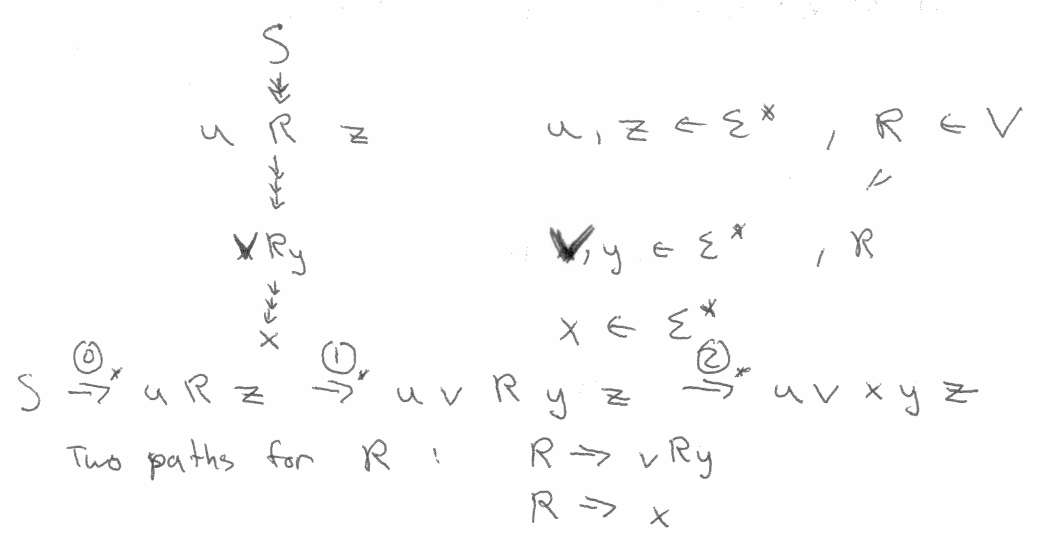 S
u R z    u, z ∈ Σ* , R ∈ V
"
v R y    v, y ∈ Σ* , R
x    x ∈ Σ*
S ⇒* u R z ⇒* u v R y z ⇒* u v x y z
⓪ ① ②
Two paths for R : R ⇒ v R y
R ⇒ x